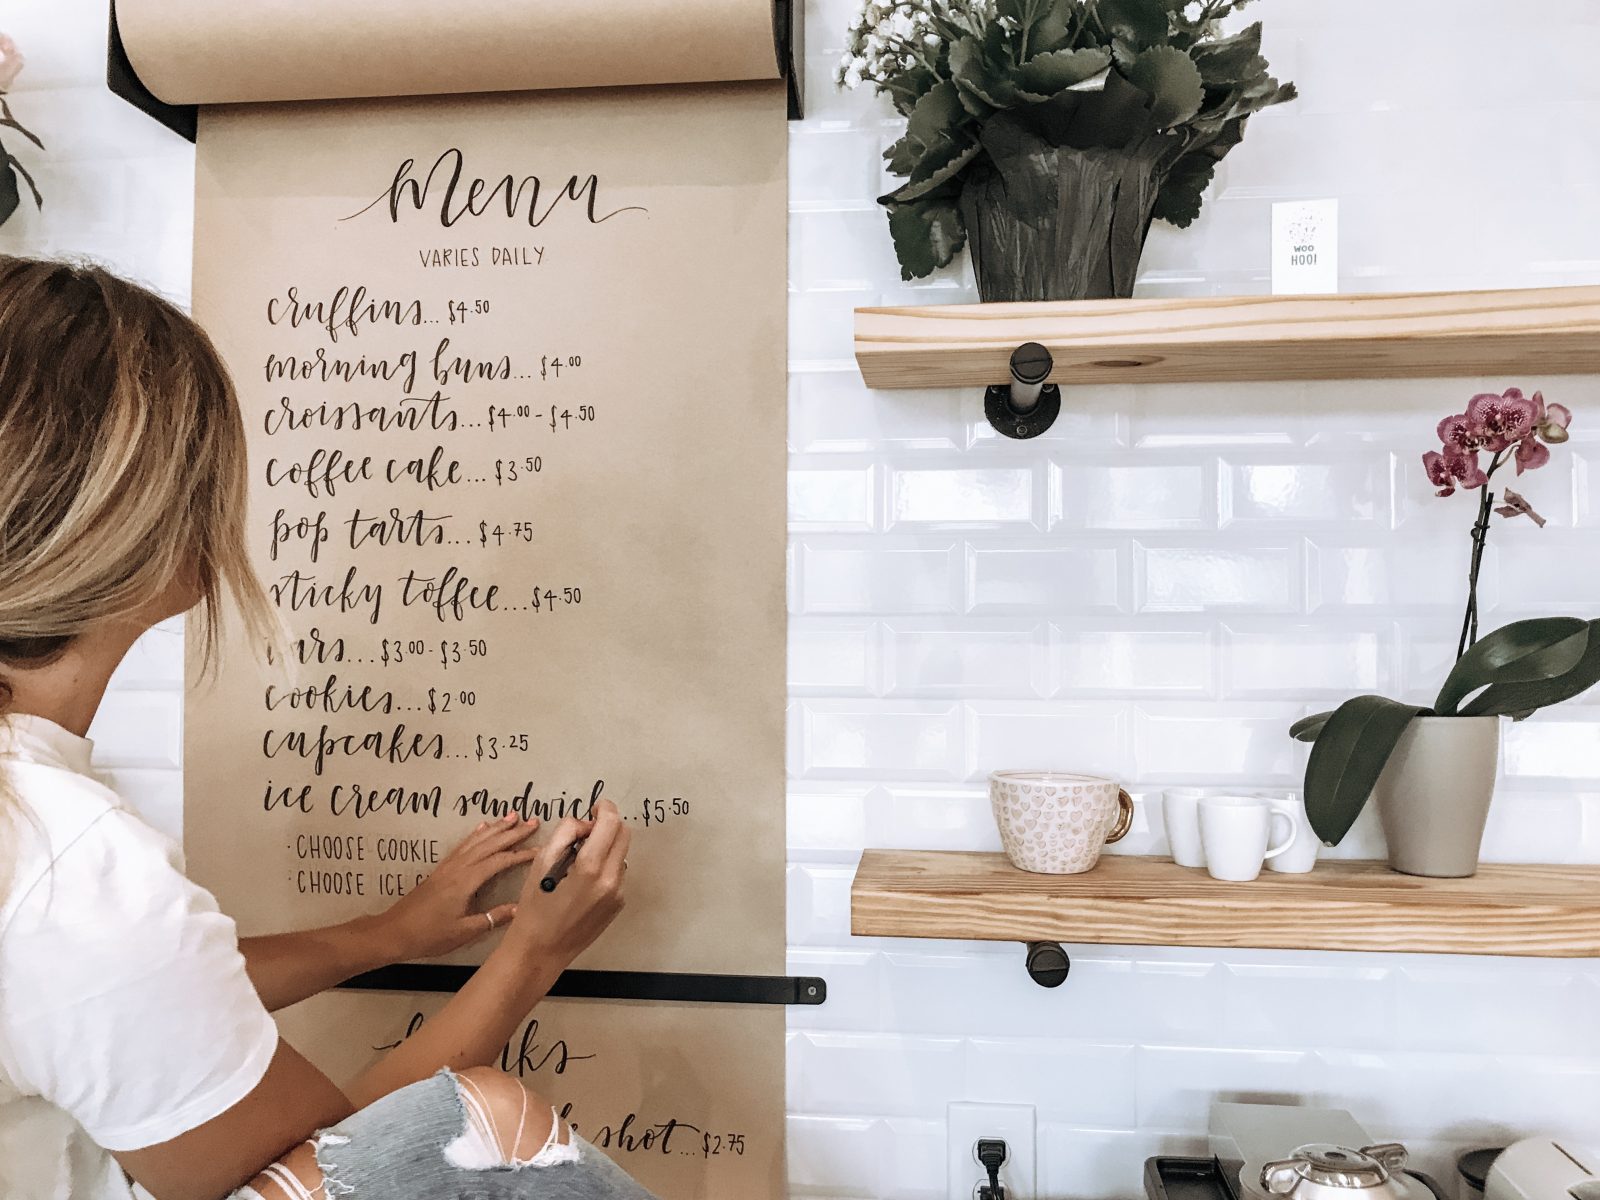 Menu
VARIES DAILY
cruffins... $4.50
morning buns... $4.00
croissants... $4.00 - $4.50
coffee cake... $3.50
pop tarts... $4.75
sticky toffee... $4.50
...$3.00 - $3.50
cookies... $2.00
cupcakes... $3.25
ice cream sandwich...$5.50
· CHOOSE COOKIE
· CHOOSE ICE
shot... $2.75
WOO
HOO!